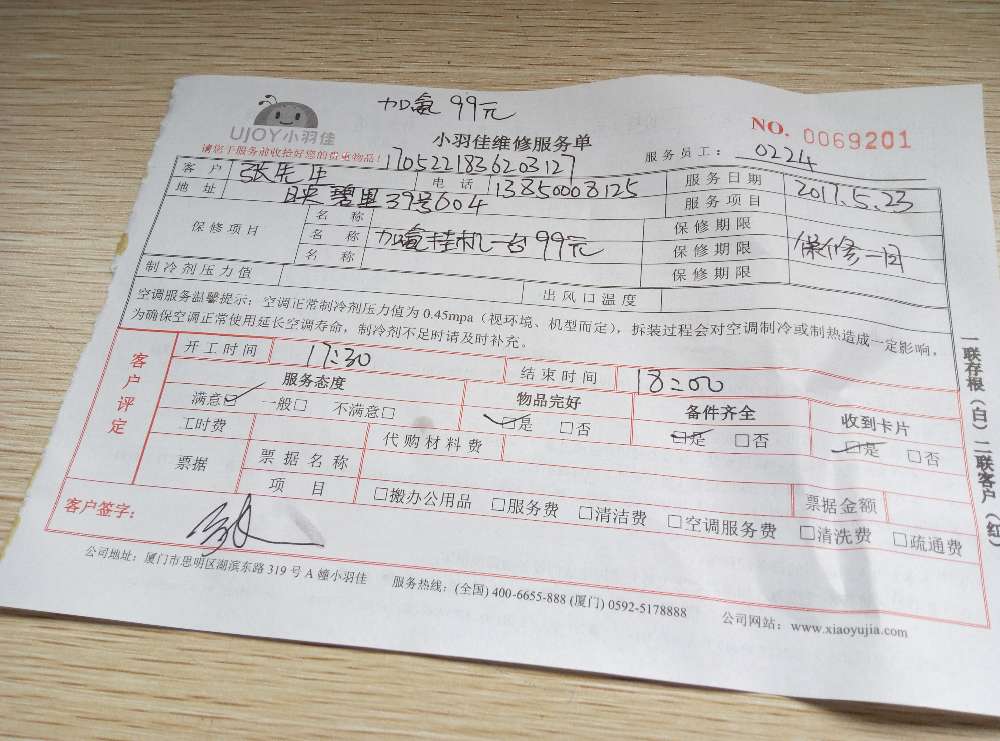 加氟 99元
UJOY小羽佳
小羽佳维修服务单
NO. 0069201
请您于服务前收拾好您的贵重物品！
1705221836203127
服务员工： 0224
客户 张先生 电话 13850008125 服务日期 2017.5.23
地址 映碧里39号604 服务项目
保修项目 名称 保修期限
名称 加氟挂机一台99元 保修期限 保修一月
名称 保修期限
制冷剂压力值 出风口温度
空调服务温馨提示：空调正常制冷剂压力值为0.45mpa（视环境、机型而定），拆装过程会对空调制冷或制热造成一定影响，
为确保空调正常使用延长空调寿命，制冷剂不足时请及时补充。
客户评定
开工时间 17:30 结束时间 18:00
服务态度 物品完好 备件齐全 收到卡片
满意☑ 一般□ 不满意□ ☑是 □否 ☑是 □否 ☑是 □否
工时费 代购材料费
票据 票据名称 票据金额
项目 □搬办公用品 □服务费 □清洁费 □空调服务费 □清洗费 □疏通费
客户签字：
公司地址：厦门市思明区湖滨东路 319 号 A 幢小羽佳 服务热线：(全国) 400-6655-888 (厦门) 0592-5178888 公司网站：www.xiaoyujia.com
一联存根（白）二联客户（红）